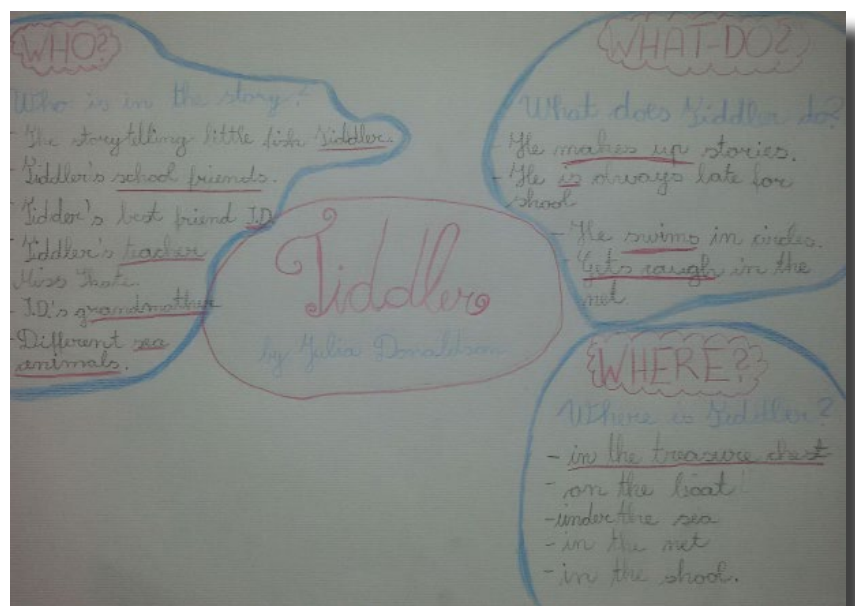 WHO?
Who is in the story?
- The storytelling little fish Tiddler.
- Tiddler's school friends.
- Tidder's best friend J.D.
- Tiddler's teacher
Miss Skate.
- J.D.'s grandmother
- Different sea
animals.
Tiddler
by Julia Donaldson
WHAT-DO?
What does Tiddler do?
- He makes up stories.
- He is always late for
shool
- He swims in circles.
- Gets caugh in the
net.
WHERE?
Where is Tiddler?
- in the treasure chest
- on the boat
- under the sea
- in the net
- in the shool.